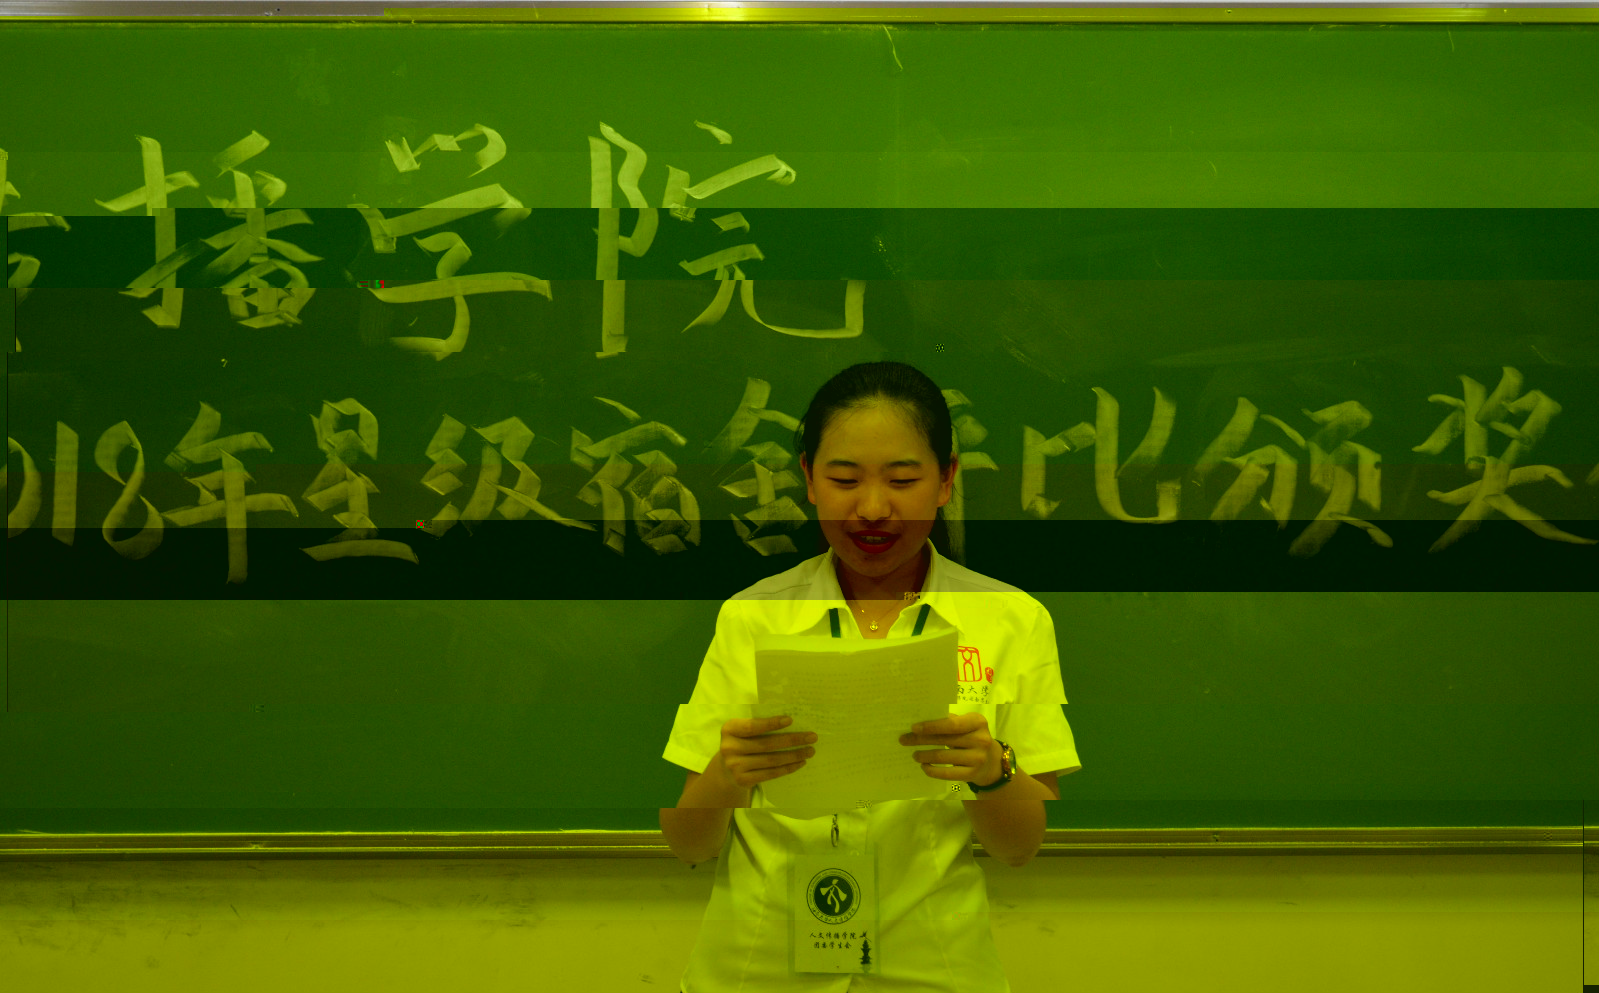 播学院
018年星级宿舍评比颁奖
人文传播学院
团委学生会